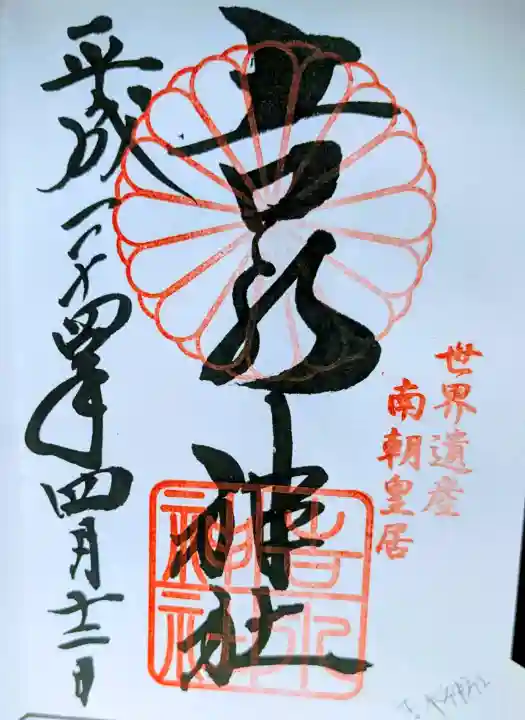 世界遺産
南朝皇居
吉水神社
吉水神社
平成二十四年四月十二日